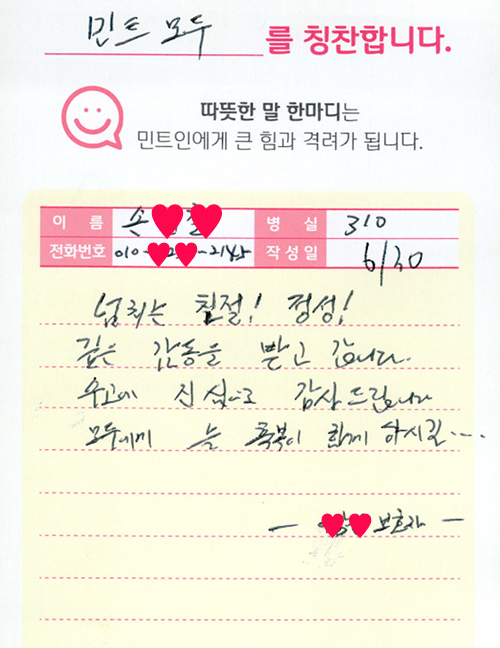 민트 모두 를 칭찬합니다.
따뜻한 말 한마디는
민트인에게 큰 힘과 격려가 됩니다.
이 름 손 병 실 310
전화번호 010- 작성일 6/30
넘치는 친절! 정성!
깊은 감동을 받고 갑니다.
수고에 진심으로 감사드립니다
모두에게 늘 축복이 함께 하시길...
- 보호자 -